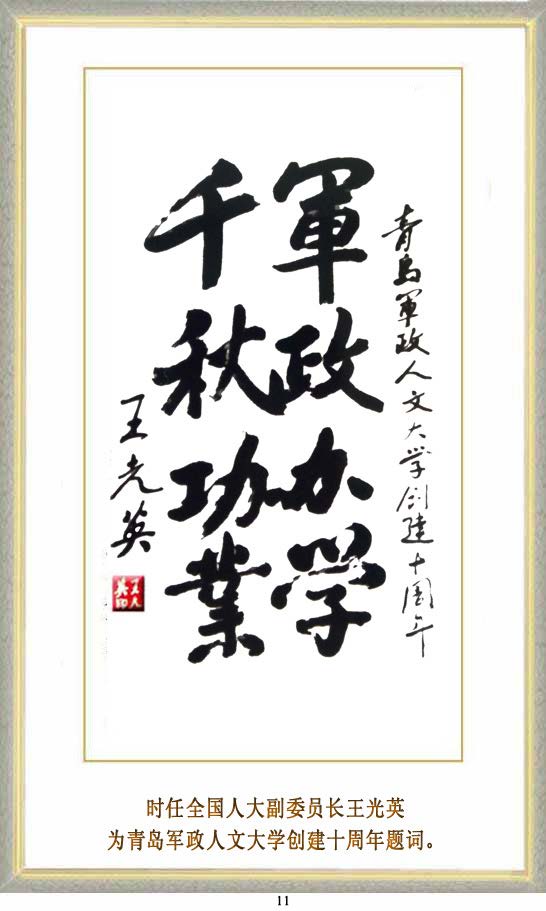 青島軍政人文大学创建十周年
軍政办学
千秋功業
王光英
王光英印
时任全国人大副委员长王光英
为青岛军政人文大学创建十周年题词。
11